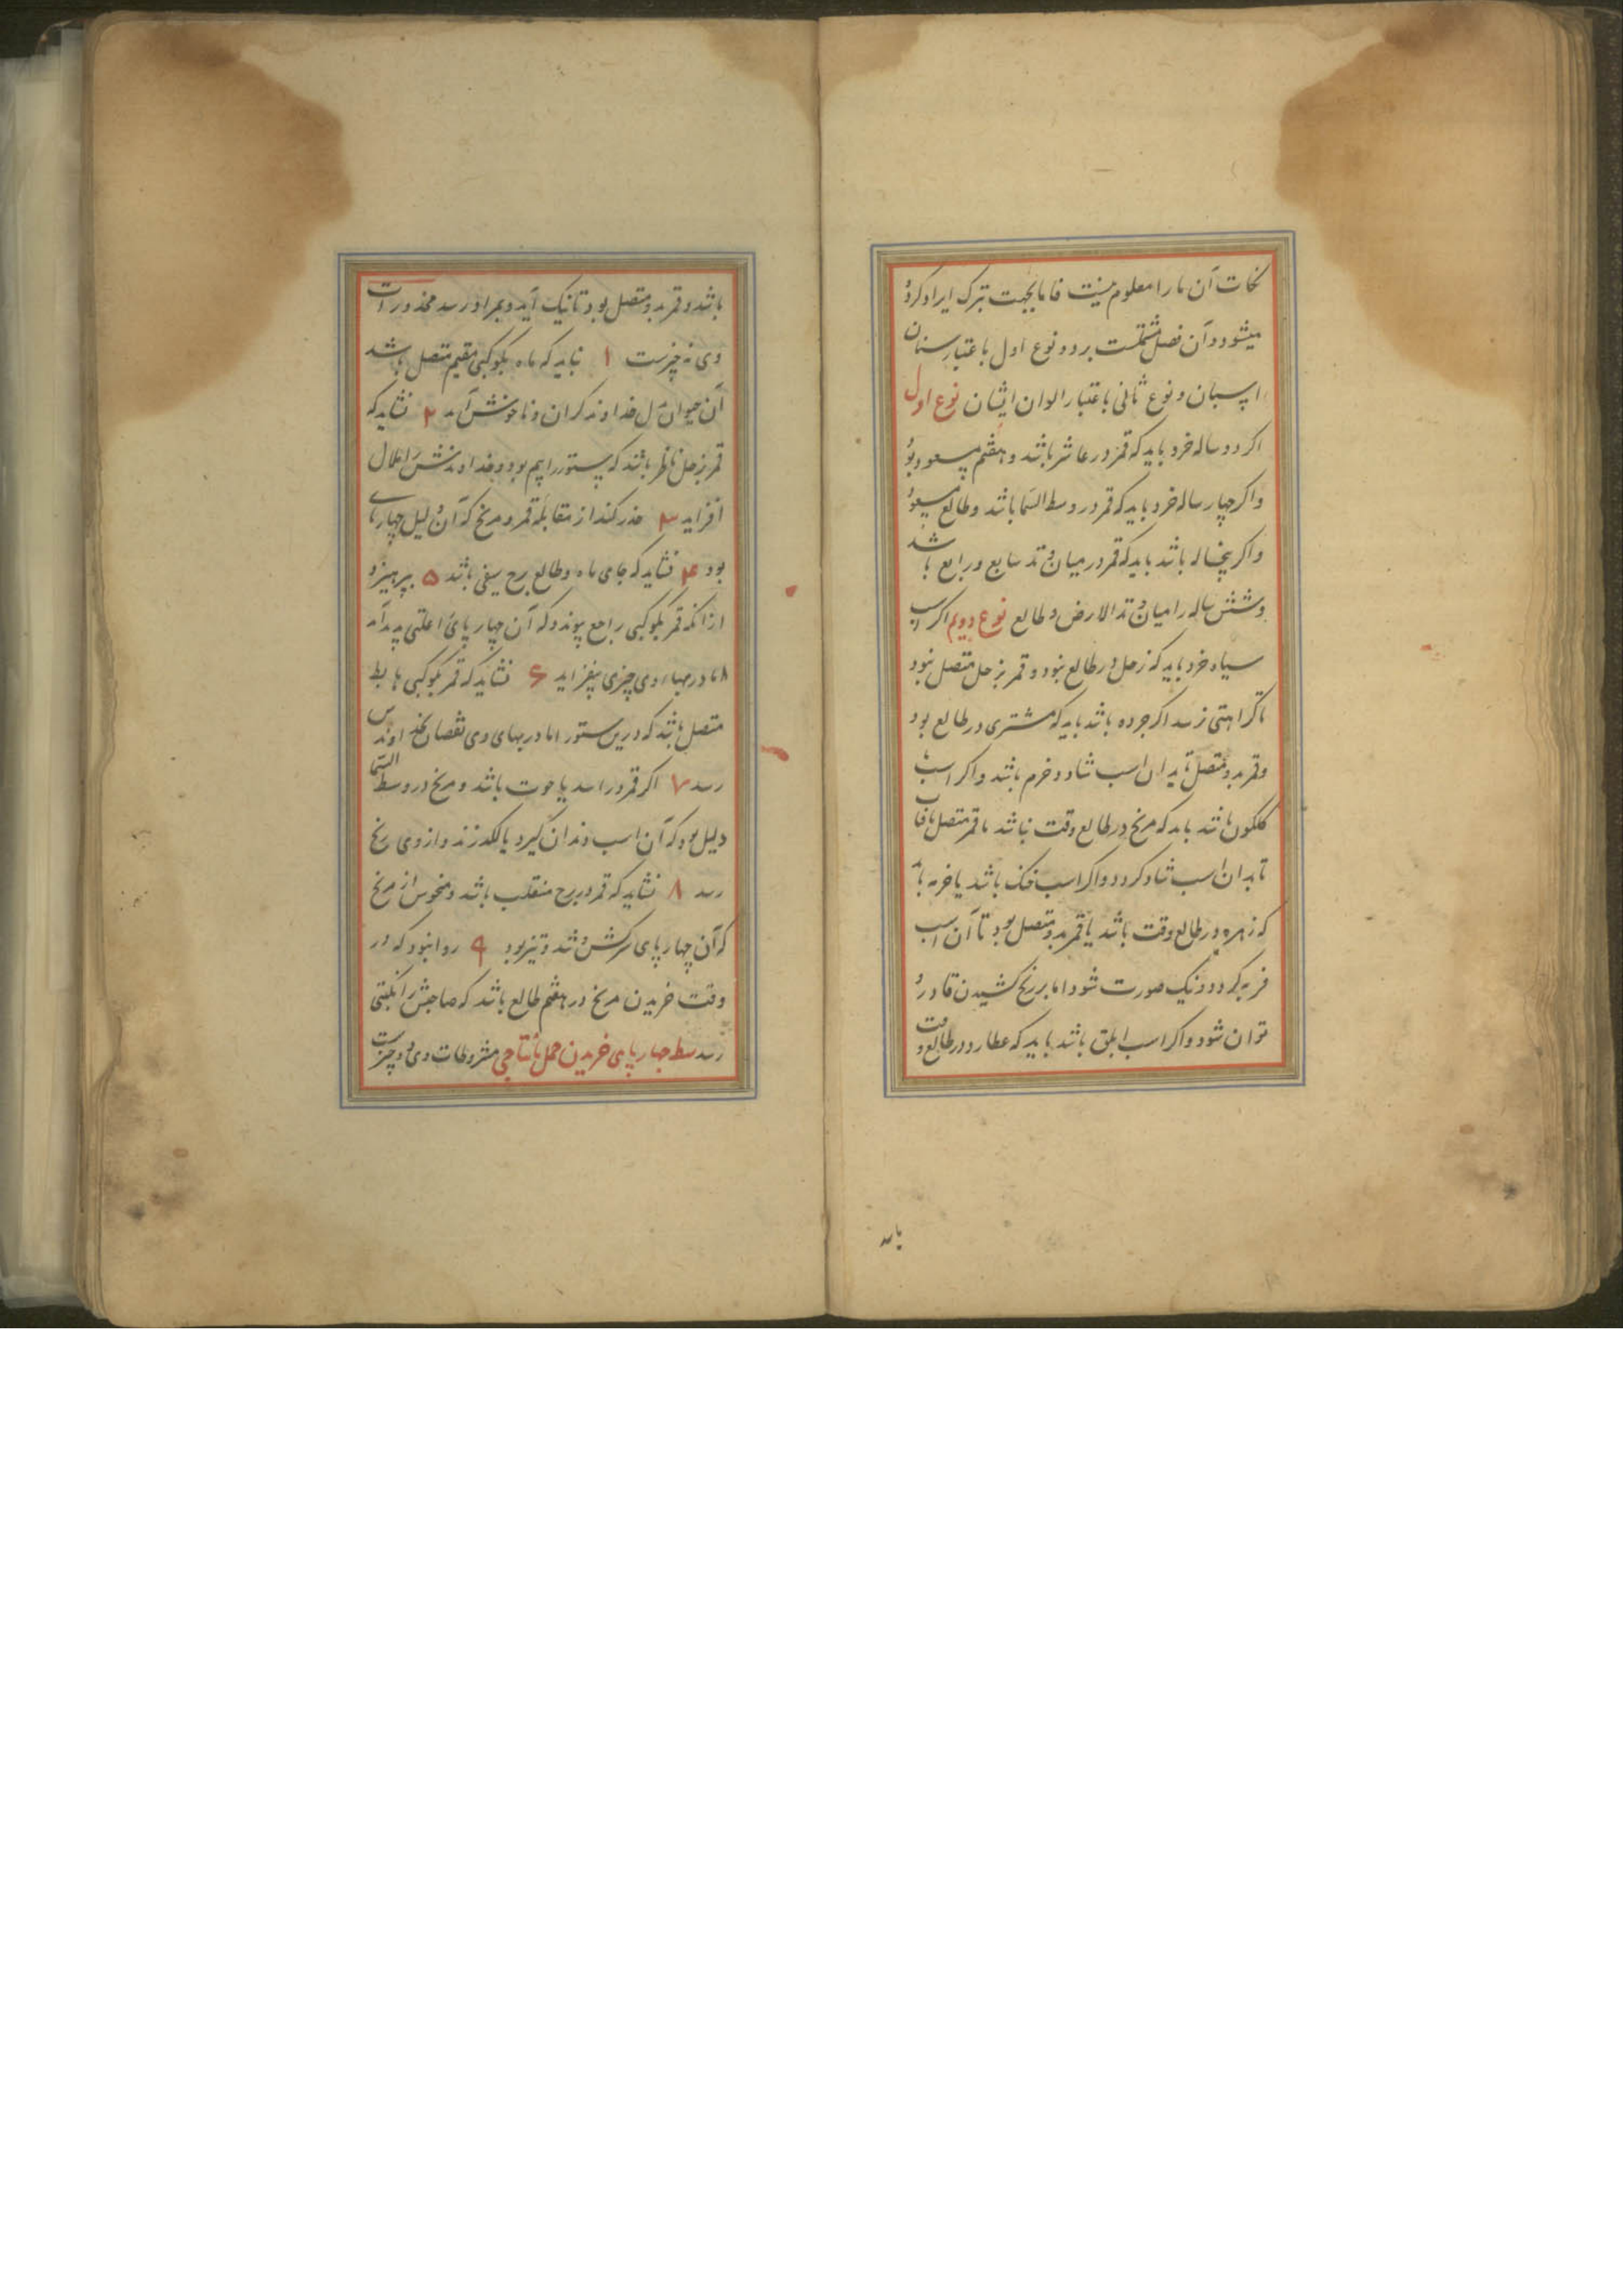 نکات آن ما را معلوم نیست فاما بجهت تبرک ایراد کرده
میشود و آن فصل مشتملست بر دو نوع اول باعتبار سنان
اسپان و نوع ثانی باعتبار الوان ایشان نوع اول
اکر دو ساله خرد باید که قمر در عاشر باشد و هفتم مسعود بود
و اکر چهار ساله خرد باید که قمر در وسط السما باشد و طالع مسعود
و اکر پنجساله باشد باید که قمر در میان وتد سابع و رابع باشد
و شش ساله را میان وتد الارض و طالع نوع دویم اکر اسب
سیاه خرد باید که زحل در طالع نبود و قمر بزحل متصل نبود
تا کراهتی نرسد اکر جرده باشد باید که مشتری در طالع بود
و قمر بدو متصل تا بدان اسب شاد و خرم باشد و اکر اسب
کلکون باشد باید که مریخ در طالع وقت باشد یا قمر متصل بافتاب
تا بدان اسب شاد کردد و اکر اسب خنک باشد یا خرمه باید
که زهره در طالع وقت باشد یا قمر بدو متصل بود تا آن اسب
فربه کردد و نیک صورت شود اما بر رنج کشیدن قادر و
توان شود و اکر اسب ابلق باشد باید که عطارد در طالع وقت
باشد
باشد و قمر بدو متصل بود تا نیک آید و بمراد رسد محذورات
وی نه چیزست ۱ نباید که ماه بکوکبی مقیم متصل باشد
آن حیوان بر دل خداوند کران و ناخوش آید ۲ نشاید که
قمر بزحل ناظر باشد که ستور را بیم بود و خداوندش را ملال
افزاید ۳ حذر کند از مقابله قمر و مریخ که آن دلیل چهارپای
بود ۴ نشاید که جای ماه و طالع برج سبعی باشد ۵ بپرهیزد
از آنکه قمر بکوکبی راجع پیوندد که آن چهارپای را علتی پدید آید
اما در بهای وی چیزی بیفزاید ۶ نشاید که قمر بکوکبی هابط
متصل باشد که درین ستور اما در بهای وی نقصان بخداوندش
رسد ۷ اکر قمر در اسد یا حوت باشد و مریخ در وسط السما
دلیل بود که آن اسب دندان کیرد یا لکد زند و از وی رنج
رسد ۸ نشاید که قمر در برج منقلب باشد و منحوس از مریخ
که آن چهارپای سرکش و تند و تیز بود ۹ روا نبود که در
وقت خریدن مریخ در هفتم طالع باشد که صاحبش را نکبتی
رسد سط چهارپای خریدن حمل یا نتاجی مشروطات وی دو چیزست